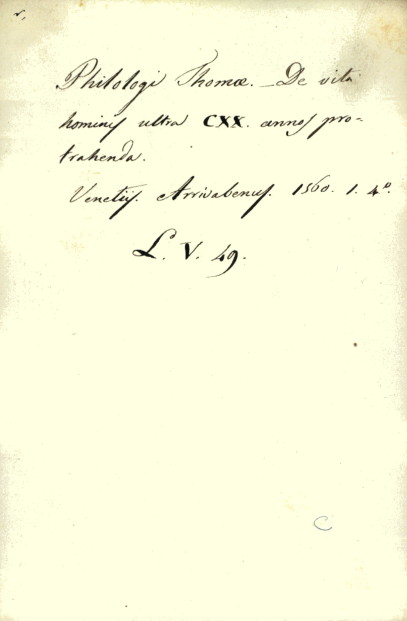 Philologi Thomæ. — De vita
hominis ultra CXX. annos pro-
trahenda.
Venetiis. Arrivabenus. 1560. 1. 4°.
L. V. 49.
C